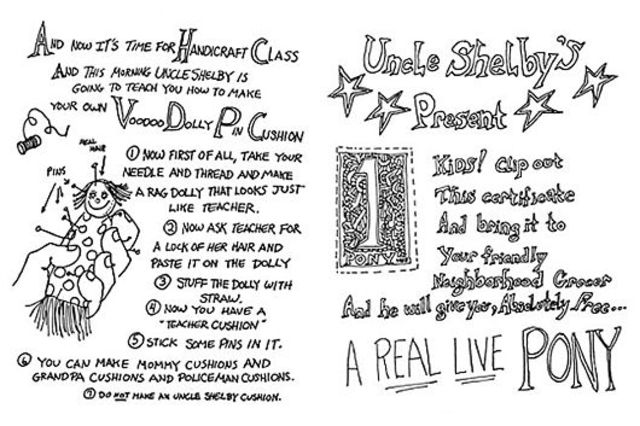 And now it's time for Handicraft Class
And this morning Uncle Shelby is
going to teach you how to make
your own Voodoo Dolly Pin Cushion
REAL HAIR
PINS
① Now first of all, take your
needle and thread and make
a rag dolly that looks just
like teacher.
② Now ask teacher for
a lock of her hair and
paste it on the dolly
③ Stuff the dolly with
straw.
④ Now you have a
"teacher cushion"
⑤ Stick some pins in it.
⑥ You can make mommy cushions and
grandpa cushions and policeman cushions.
⑦ Do not make an Uncle Shelby cushion.
Uncle Shelby's
Present
1
PONY
Kids! Clip out
This certificate
And bring it to
Your friendly
Neighborhood Grocer
And he will give you, Absolutely Free...
A REAL LIVE PONY